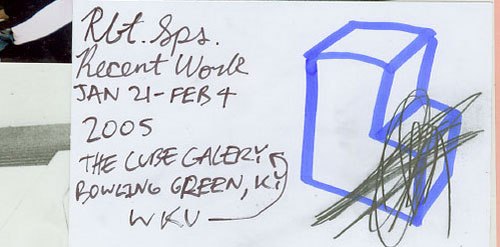 Rbt. Sps.
Recent Work
JAN 21-FEB 4
2005
THE CUBE GALERY
BOWLING GREEN, KY
WKU